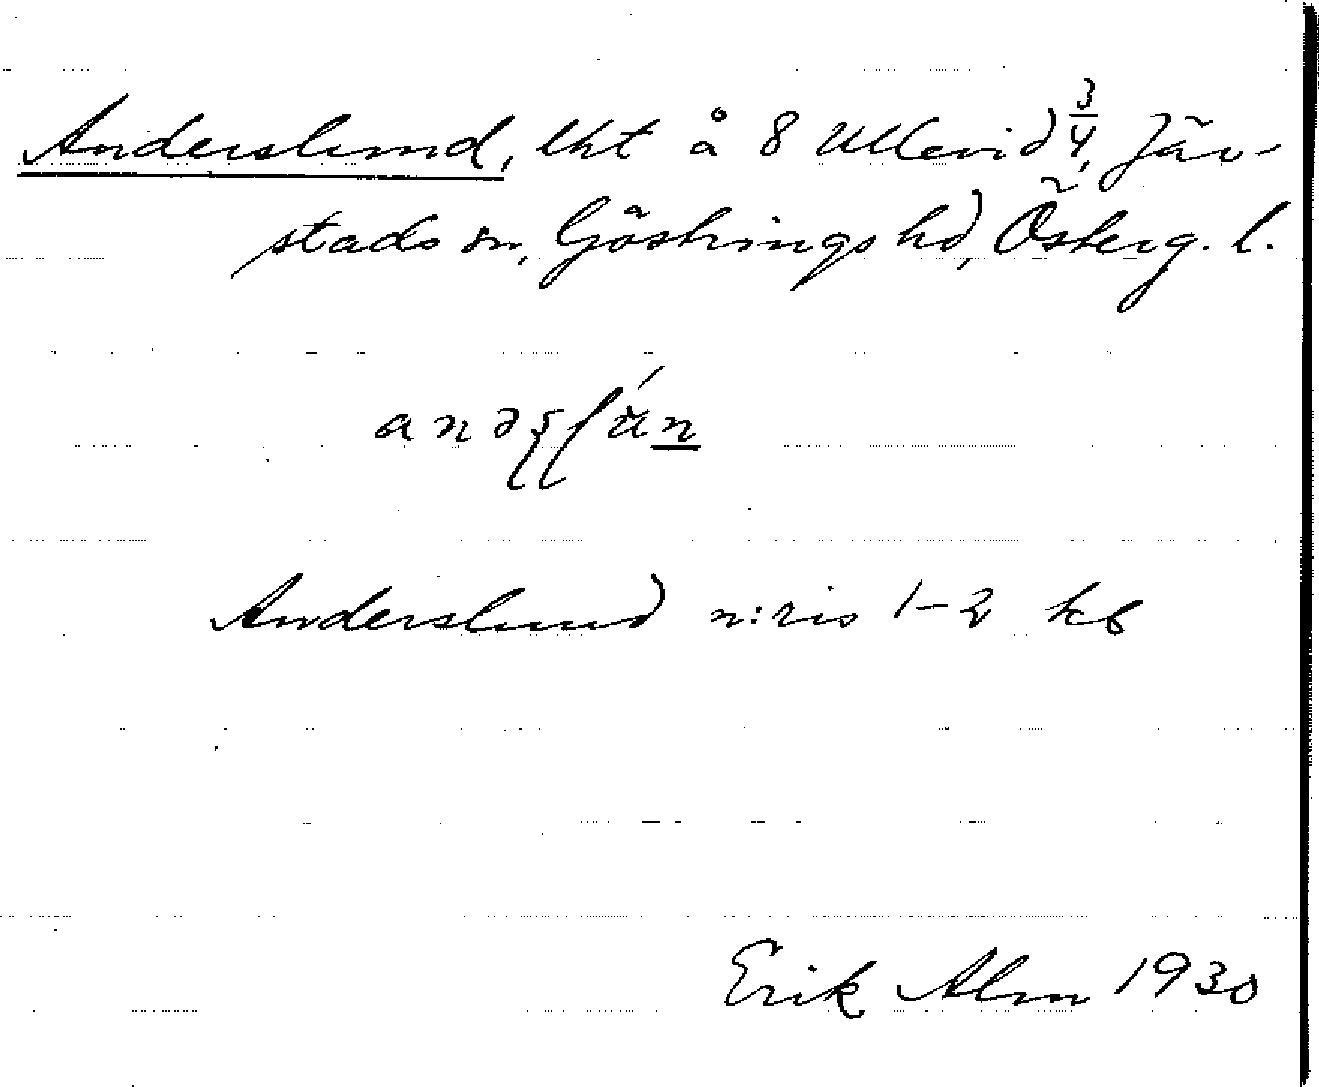 Anderslund, lht å 8 Ullevid 3/4, Järstads sn, Göstrings hd, Österg. l.
Anderslund n:ris 1-2 kb
Erik Alm 1930